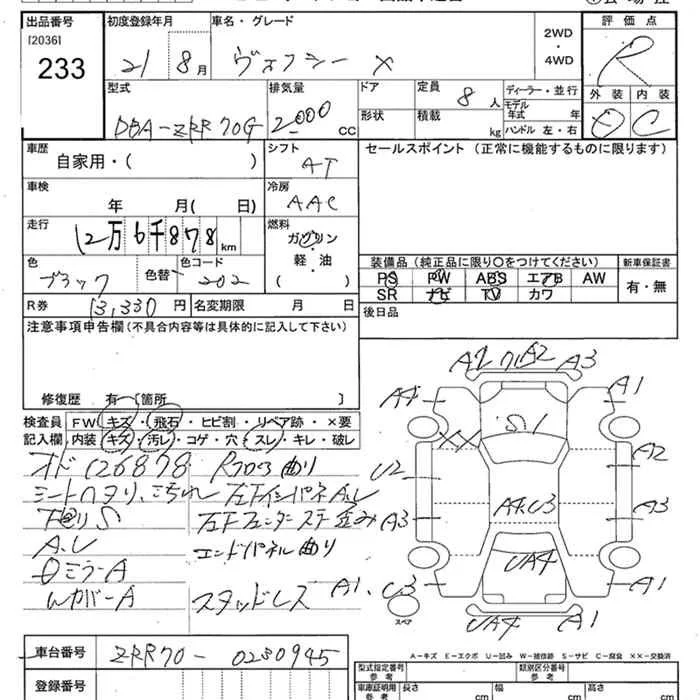 出品番号 初度登録年月 車名・グレード 2WD ・ 4WD 評価点
[2036]
233 21 8月 ヴォクシー X R
型式 排気量 ドア 定員 8人 ディーラー・並行 外装 内装
DBA-ZRR70G 2000 CC 形状 積載 kg モデル年式 年 ハンドル 左・右 D C
車歴 シフト セールスポイント (正常に機能するものに限ります)
自家用・( ) AT
車検 冷房
年 月( 日) AAC
走行 燃料
12万6千878km ガソリン
軽・油
( )
色 色替 色コード
ブラック 202
装備品 (純正品に限り○をつけてください) 新車保証書
PS PW ABS エアB AW 有・無
SR ナビ TV カワ
R券 13,330円 名変期限 月 日 後日品
注意事項申告欄 (不具合内容等は具体的に記入して下さい)
修復歴 有-[箇所 ]
検査員 FW キズ・飛石・ヒビ割・リペア跡・×要
記入欄 内装 キズ・汚レ・コゲ・穴・スレ・キレ・破レ
オド126878 Rフロア曲り
シートヘタリ、汚れ 左下インパネA.U
下廻りS
A.U エンドパネル曲り
ミラーA
A スタッドレス
A2 A2 A3
A4 A1
S1
XX
U2 A2
A4.U3
A3 A3
UA4
A1.U3 A1
UA4 A1
スペア
A-キズ E-エクボ U-凹み W-補修跡 S-サビ C-腐食 XX-交換済
車台番号 ZRR70-0230945
登録番号
型式指定番号 参考 類別区分番号 参考
車庫証明用 参考 長さ cm 幅 cm 高さ cm